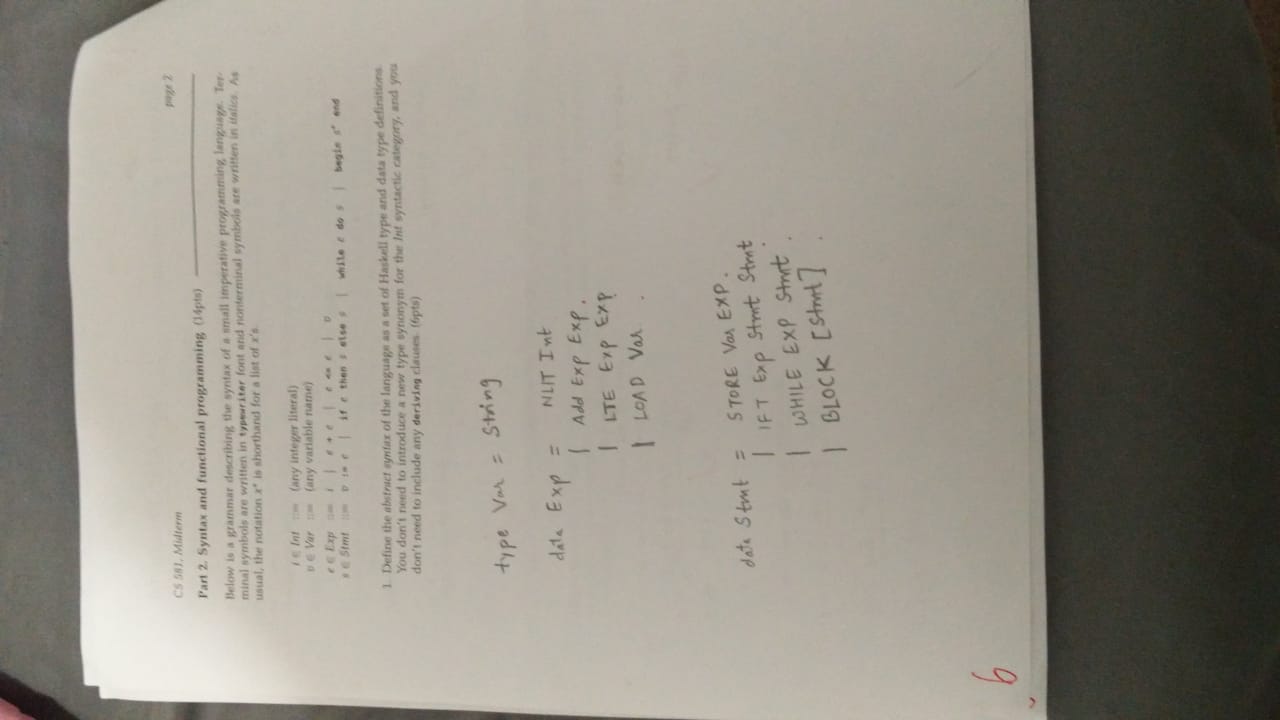 page 2
CS 581, Midterm
Part 2. Syntax and functional programming (14pts)
Below is a grammar describing the syntax of a small imperative programming language. Ter-
minal symbols are written in typewriter font and nonterminal symbols are written in italics. As
usual, the notation x* is shorthand for a list of x's.
i ∈ Int ::= (any integer literal)
v ∈ Var ::= (any variable name)
e ∈ Exp ::= i | e + e | e <= e | v
s ∈ Stmt ::= v := e | if e then s else s | while e do s | begin s* end
1. Define the abstract syntax of the language as a set of Haskell type and data type definitions.
You don't need to introduce a new type synonym for the Int syntactic category, and you
don't need to include any deriving clauses. (6pts)
type Var = String
data Exp = NLIT Int
| Add Exp Exp.
| LTE Exp Exp
| LOAD Var .
data Stmt = STORE Var EXP.
| IFT Exp Stmt Stmt
| WHILE EXP Stmt .
| BLOCK [Stmt] .
6